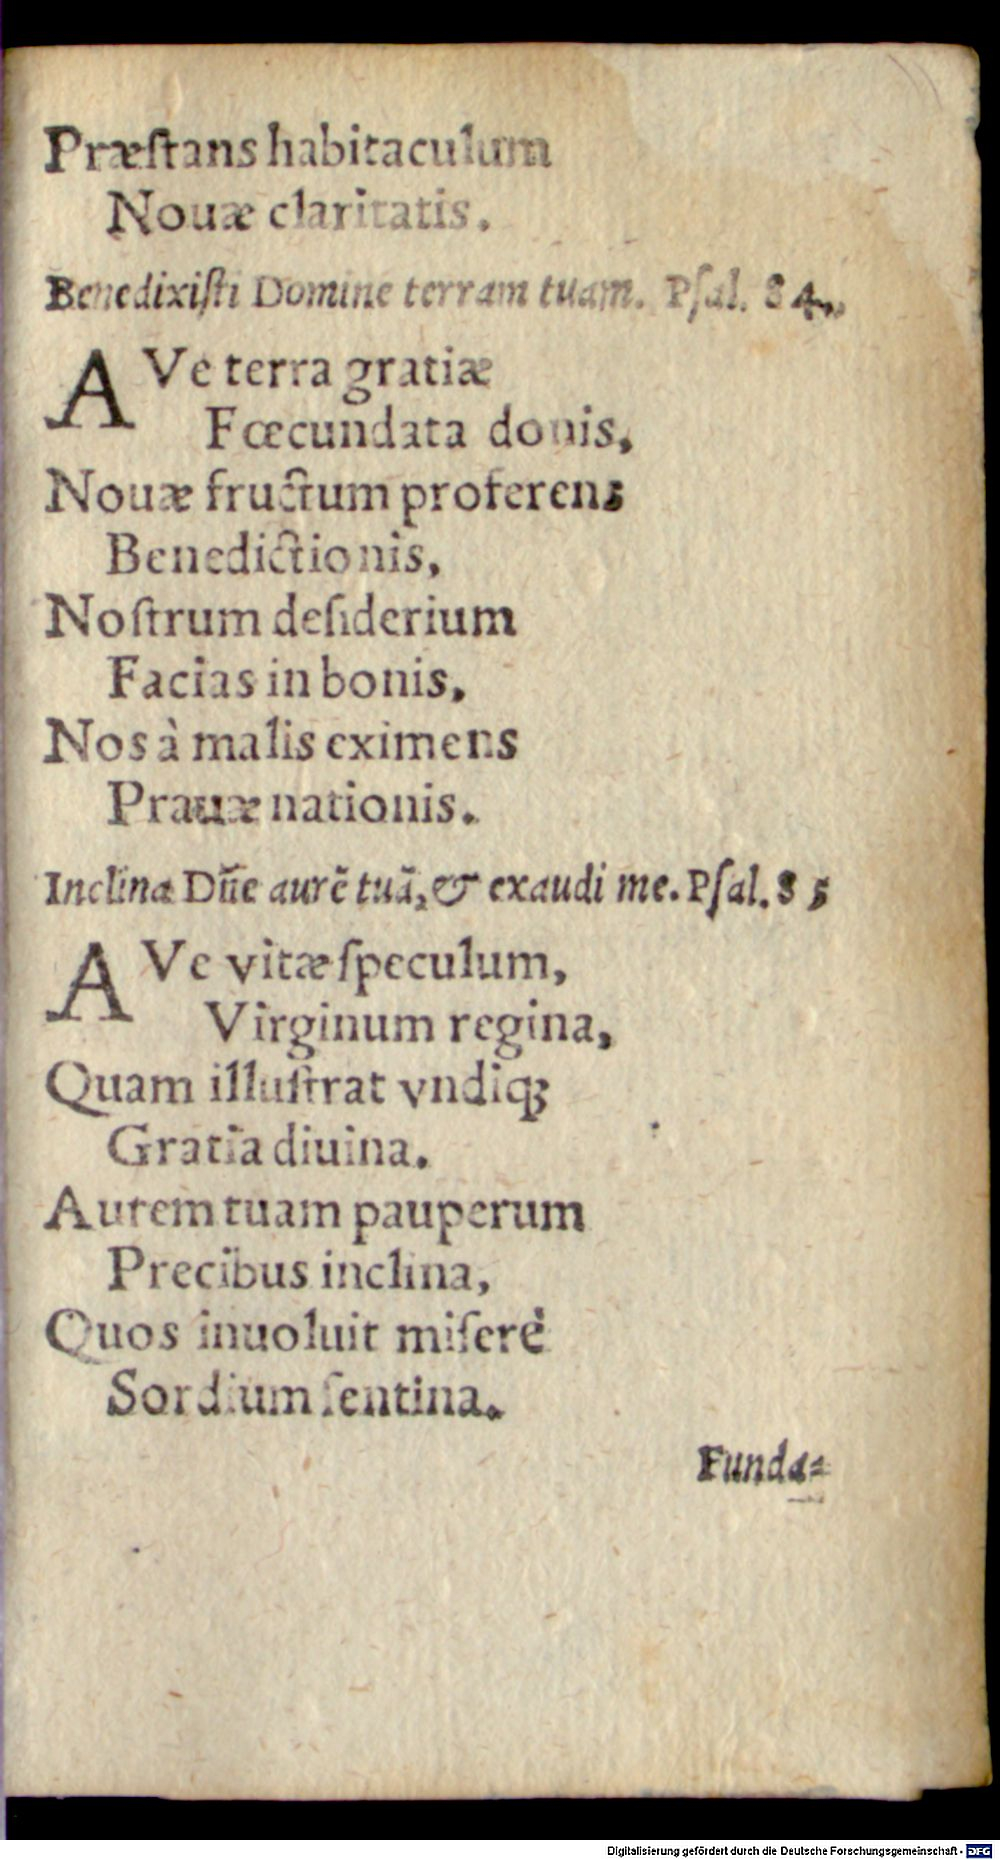 Præſtans habitaculum
Nouæ claritatis.
Benedixiſti Domine terram tuam. Pſal. 84.
AVe terra gratiæ
Fœcundata donis,
Nouæ fructum proferens
Benedictionis,
Noſtrum deſiderium
Facias in bonis,
Nos à malis eximens
Prauæ nationis.
Inclina Dñe aurẽ tuã, & exaudi me. Pſal. 85
AVe vitæ ſpeculum,
Virginum regina,
Quam illuſtrat vndiqꝫ
Gratia diuina.
Aurem tuam pauperum
Precibus inclina,
Quos inuoluit miſerè
Sordium ſentina.
Funda⸗
Digitalisierung gefördert durch die Deutsche Forschungsgemeinschaft - DFG